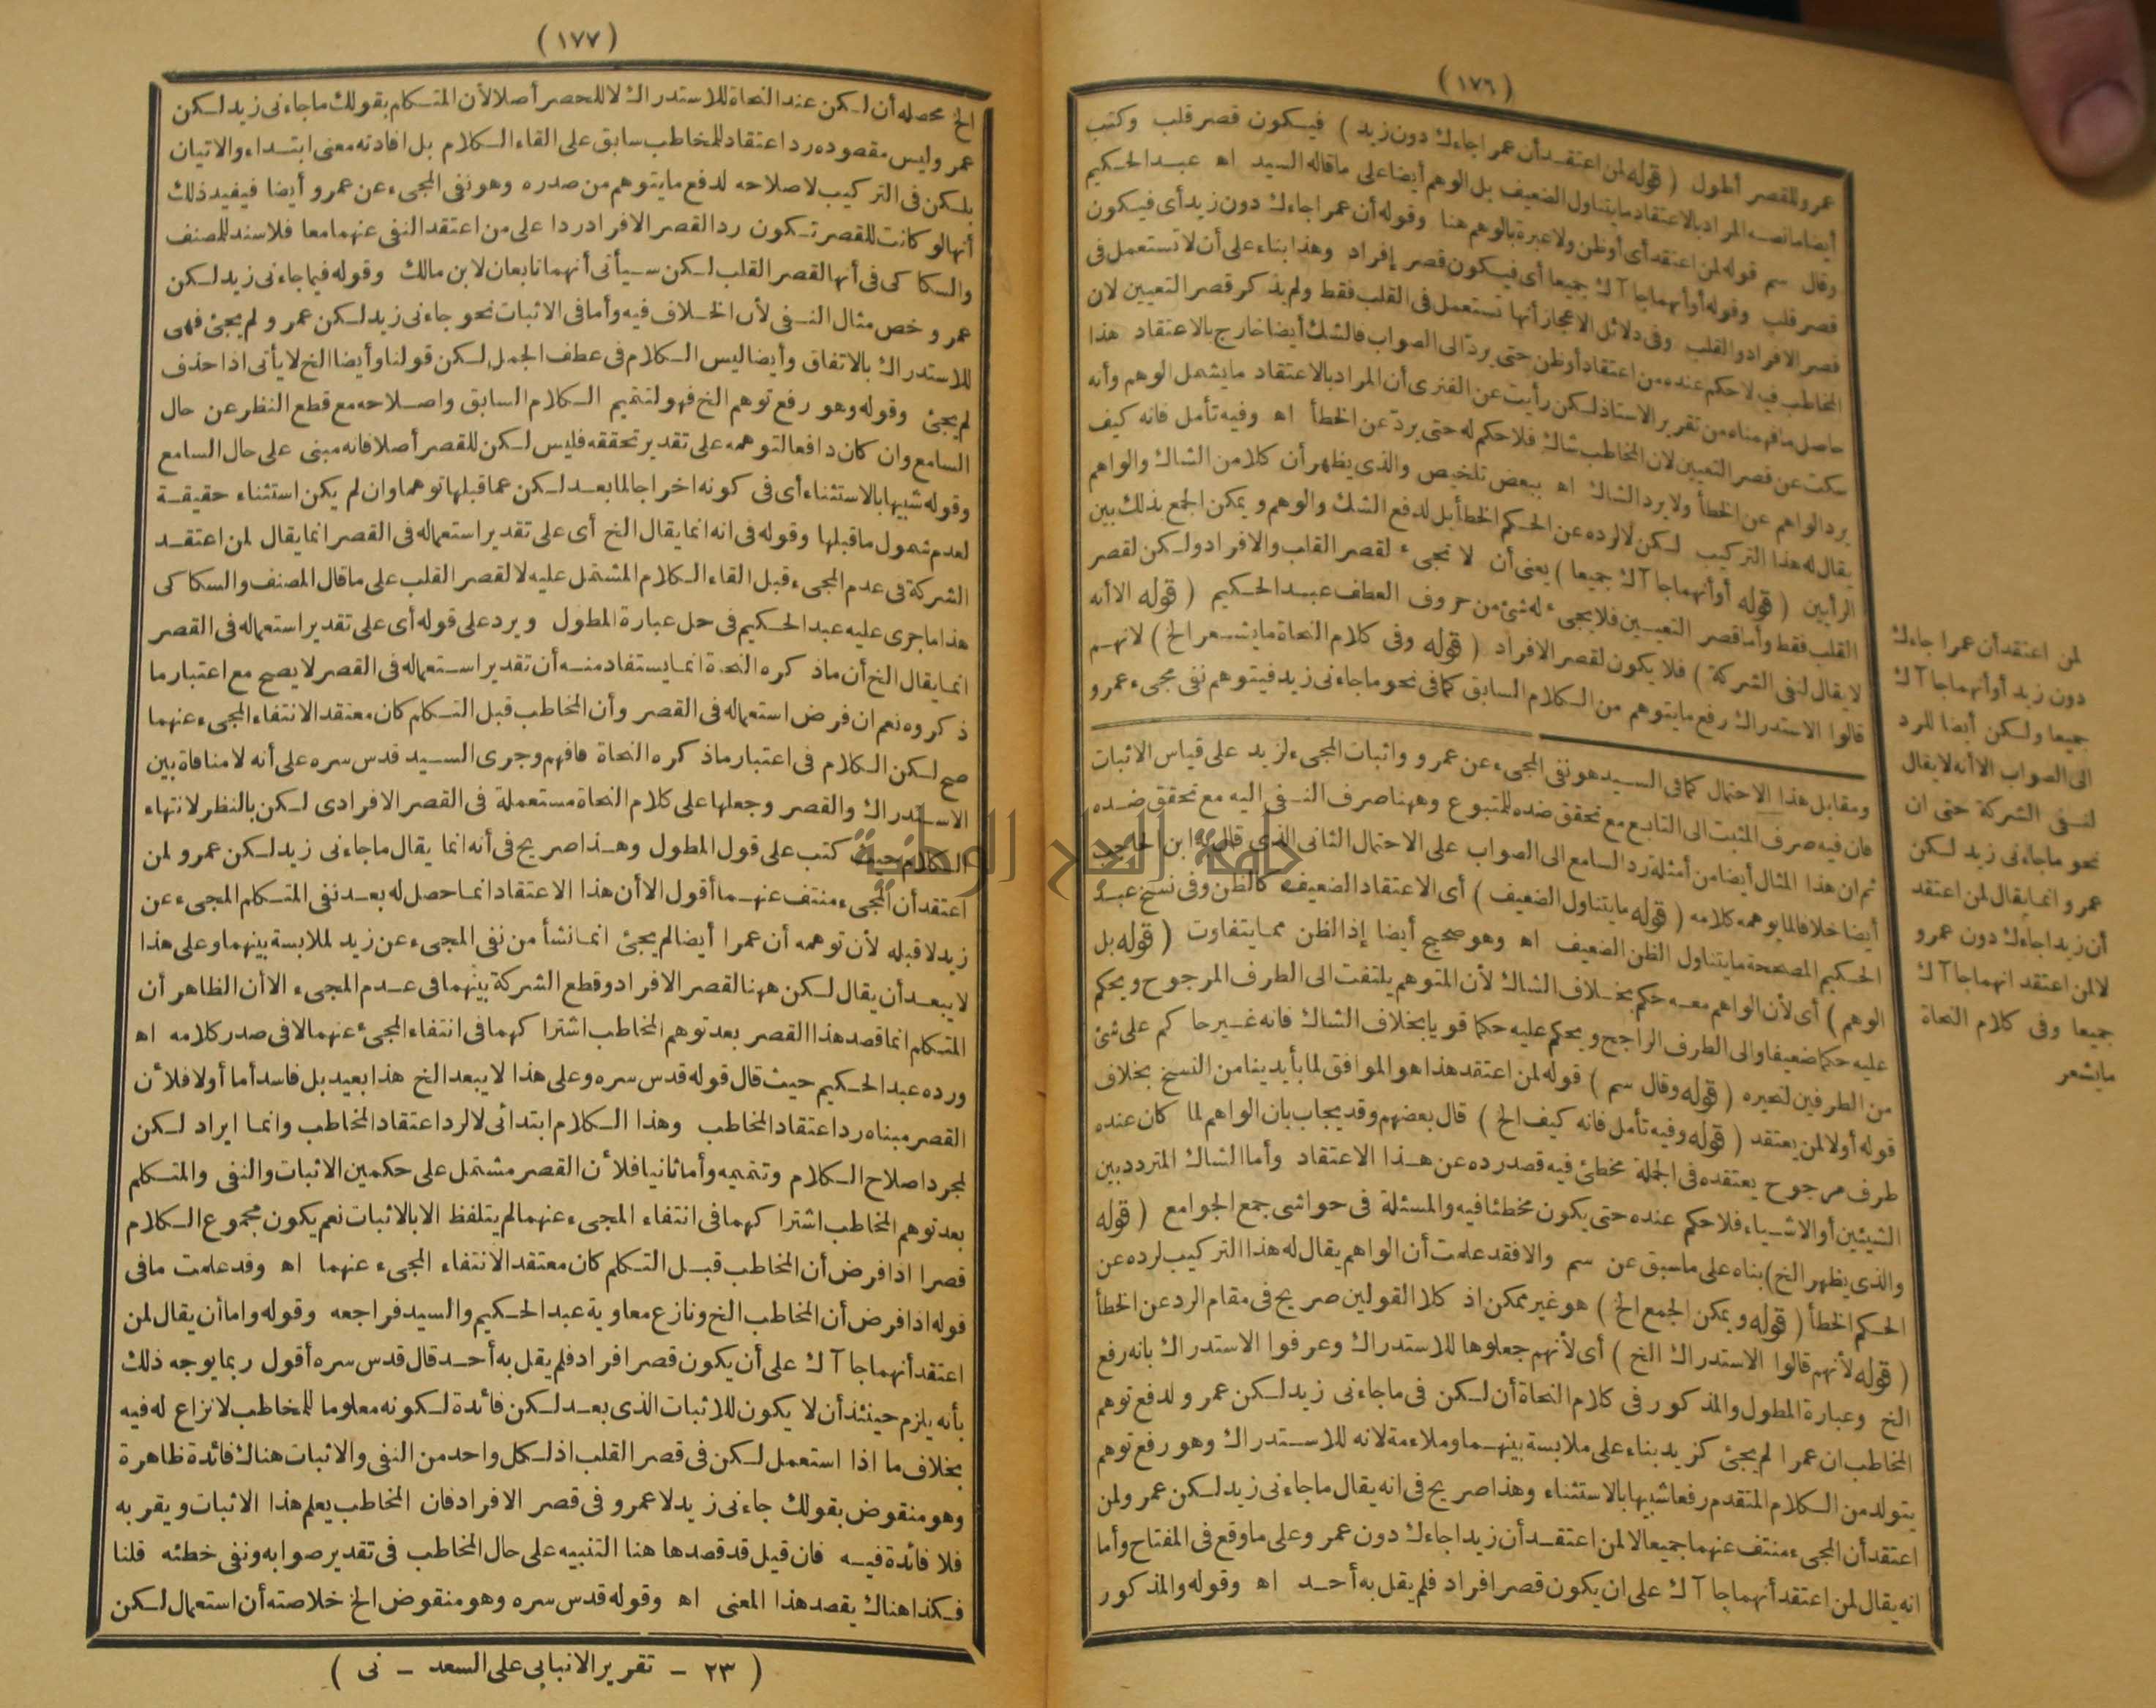 (١٧٦)
عمرو للقصر أطول (قوله لمن اعتقد أن عمرا جاءك دون زيد) فيكون قصر قلب وكتب
أيضا ما نصه المراد بالاعتقاد ما يتناول الضعيف بل الوهم أيضا على ما قاله السيد اه عبد الحكيم
وقال سم قوله لمن اعتقد أى أو ظن ولا عبرة بالوهم هنا وقوله أن عمرا جاءك دون زيد أى فيكون
قصر قلب وقوله أو أنهما جا آك جميعا أى فيكون قصر إفراد وهذا بناء على أن لا تستعمل فى
قصر الافراد والقلب وفى دلائل الاعجاز أنها تستعمل فى القلب فقط ولم يذكر قصر التعيين لان
المخاطب فيه لا حكم عنده من اعتقاد أو ظن حتى يردّ الى الصواب فالشك أيضا خارج بالاعتقاد هذا
حاصل ما فهمناه من تقرير الاستاذ لكن رأيت عن الفنرى أن المراد بالاعتقاد ما يشمل الوهم وأنه
سكت عن قصر التعيين لان المخاطب شاك فلا حكم له حتى يردّ عن الخطأ اه وفيه تأمل فانه كيف
يرد الواهم عن الخطأ ولا يرد الشاك اه ببعض تلخيص والذى يظهر أن كلا من الشاك والواهم
يقال له هذا التركيب لكن لا لرده عن الحكم الخطأ بل لدفع الشك والوهم ويمكن الجمع بذلك بين
الرأيين (قوله أو أنهما جا آك جميعا) يعنى أن لا تجىء لقصر القلب والافراد ولكن لقصر
القلب فقط وأما قصر التعيين فلا يجىء له شئ من حروف العطف عبد الحكيم (قوله الا أنه
لا يقال لنفى الشركة) فلا يكون لقصر الافراد (قوله وفى كلام النحاة ما يشعر الخ) لانهم
قالوا الاستدراك رفع ما يتوهم من الكلام السابق كما فى نحو ما جاءنى زيد فيتوهم نفى مجىء عمرو
لمن اعتقد أن عمرا جاءك
دون زيد أو أنهما جا آك
جميعا ولكن أيضا للرد
الى الصواب الا أنه لا يقال
لنفى الشركة حتى ان
نحو ما جاءنى زيد لكن
عمرو انما يقال لمن اعتقد
أن زيدا جاءك دون عمرو
لا لمن اعتقد انهما جا آك
جميعا وفى كلام النحاة
ما يشعر
ومقابل هذا الاحتمال كما فى السيد هو نفى المجىء عن عمرو واثبات المجىء لزيد على قياس الاثبات
فان فيه صرف المثبت الى التابع مع تحقق ضده للمتبوع وههنا صرف النفى اليه مع تحقق ضده
ثم ان هذا المثال أيضا من أمثلة رد السامع الى الصواب على الاحتمال الثانى الذى قال به ابن الحاجب
أيضا خلافا لما يوهمه كلامه (قوله ما يتناول الضعيف) أى الاعتقاد الضعيف كالظن وفى نسخ عبد
الحكيم المصححة ما يتناول الظن الضعيف اه وهو صحيح أيضا إذ الظن مما يتفاوت (قوله بل
الوهم) أى لأن الواهم معه حكم بخلاف الشاك لأن المتوهم يلتفت الى الطرف المرجوح ويحكم
عليه حكما ضعيفا والى الطرف الراجح ويحكم عليه حكما قويا بخلاف الشاك فانه غير حاكم على شئ
من الطرفين لتحيره (قوله وقال سم) قوله لمن اعتقد هذا هو الموافق لما بأيدينا من النسخ بخلاف
قوله أولا لمن يعتقد (قوله وفيه تأمل فانه كيف الخ) قال بعضهم وقد يجاب بان الواهم لما كان عنده
طرف مرجوح يعتقده فى الجملة مخطئ فيه قصد رده عن هذا الاعتقاد وأما الشاك المتردد بين
الشيئين أو الاشياء فلا حكم عنده حتى يكون مخطئا فيه والمسئلة فى حواشى جمع الجوامع (قوله
والذى يظهر الخ) بناه على ما سبق عن سم والا فقد علمت أن الواهم يقال له هذا التركيب لرده عن
الحكم الخطأ (قوله ويمكن الجمع الخ) هو غير ممكن اذ كلا القولين صريح فى مقام الرد عن الخطأ
(قوله لأنهم قالوا الاستدراك الخ) أى لأنهم جعلوها للاستدراك وعرفوا الاستدراك بانه رفع
الخ وعبارة المطول والمذكور فى كلام النحاة أن لكن فى ما جاءنى زيد لكن عمرو لدفع توهم
المخاطب ان عمرا لم يجئ كزيد بناء على ملابسة بينهما وملاءمة لانه للاستدراك وهو رفع توهم
يتولد من الكلام المتقدم رفعا شبيها بالاستثناء وهذا صريح فى انه يقال ما جاءنى زيد لكن عمرو لمن
اعتقد أن المجىء منتف عنهما جميعا لا لمن اعتقد أن زيدا جاءك دون عمرو وعلى ما وقع فى المفتاح وأما
انه يقال لمن اعتقد أنهما جا آك على ان يكون قصر افراد فلم يقل به أحد اه وقوله والمذكور
(١٧٧)
الخ محصله أن لكن عند النحاة للاستدراك لا للحصر أصلا لأن المتكلم بقولك ما جاءنى زيد لكن
عمرو ليس مقصوده رد اعتقاد للمخاطب سابق على القاء الكلام بل افادته معنى ابتداء والاتيان
بلكن فى التركيب لاصلاحه لدفع ما يتوهم من صدره وهو نفى المجىء عن عمرو أيضا فيفيد ذلك
أنها لو كانت للقصر تكون ردا لقصر الافراد ردا على من اعتقد النفى عنهما معا فلا سند للمصنف
والسكاكى فى أنها لقصر القلب لكن سيأتى أنهما تابعان لابن مالك وقوله فيما جاءنى زيد لكن
عمرو خص مثال النفى لأن الخلاف فيه وأما فى الاثبات نحو جاءنى زيد لكن عمرو لم يجئ فهى
للاستدراك بالاتفاق وأيضا ليس الكلام فى عطف الجمل لكن قولنا وأيضا الخ لا يأتى اذا حذف
لم يجئ وقوله وهو رفع توهم الخ فهو لتتميم الكلام السابق واصلاحه مع قطع النظر عن حال
السامع وان كان دافعا لتوهمه على تقدير تحققه فليس لكن للقصر أصلا فانه مبنى على حال السامع
وقوله شبيها بالاستثناء أى فى كونه اخراجا لما بعد لكن عما قبلها توهما وان لم يكن استثناء حقيقة
لعدم شمول ما قبلها وقوله فى انه انما يقال الخ أى على تقدير استعماله فى القصر انما يقال لمن اعتقد
الشركة فى عدم المجىء قبل القاء الكلام المشتمل عليه لا لقصر القلب على ما قال المصنف والسكاكى
هذا ما جرى عليه عبد الحكيم فى حل عبارة المطول ويرد على قوله أى على تقدير استعماله فى القصر
انما يقال الخ أن ما ذكره النحاة انما يستفاد منه أن تقدير استعماله فى القصر لا يصح مع اعتبار ما
ذكروه نعم ان فرض استعماله فى القصر وأن المخاطب قبل التكلم كان معتقدا لانتفاء المجىء عنهما
صح لكن الكلام فى اعتبار ما ذكره النحاة فافهم وجرى السيد قدس سره على أنه لا منافاة بين
الاستدراك والقصر وجعلها على كلام النحاة مستعملة فى القصر الافرادى لكن بالنظر لانتهاء
الكلام حيث كتب على قول المطول وهذا صريح فى أنه انما يقال ما جاءنى زيد لكن عمرو لمن
اعتقد أن المجىء منتف عنهما أقول الا أن هذا الاعتقاد انما حصل له بعد نفى المتكلم المجىء عن
زيد لا قبله لأن توهمه أن عمرا أيضا لم يجئ انما نشأ من نفى المجىء عن زيد لملابسة بينهما وعلى هذا
لا يبعد أن يقال لكن ههنا لقصر الافراد وقطع الشركة بينهما فى عدم المجىء الا أن الظاهر أن
المتكلم انما قصد هذا القصر بعد توهم المخاطب اشتراكهما فى انتفاء المجىء عنهما لا فى صدر كلامه اه
ورده عبد الحكيم حيث قال قوله قدس سره وعلى هذا لا يبعد الخ هذا بعيد بل فاسد أما أولا فلأن
القصر مبناه رد اعتقاد المخاطب وهذا الكلام ابتدائى لا لرد اعتقاد المخاطب وانما ايراد لكن
لمجرد اصلاح الكلام وتتميمه وأما ثانيا فلأن القصر مشتمل على حكمين الاثبات والنفى والمتكلم
بعد توهم المخاطب اشتراكهما فى انتفاء المجىء عنهما لم يتلفظ الا بالاثبات نعم يكون مجموع الكلام
قصرا اذا فرض أن المخاطب قبل التكلم كان معتقدا لانتفاء المجىء عنهما اه وقد علمت ما فى
قوله اذا فرض أن المخاطب الخ ونازع معاوية عبد الحكيم والسيد فراجعه وقوله واما أن يقال لمن
اعتقد أنهما جا آك على أن يكون قصر افراد فلم يقل به أحد قال قدس سره أقول ربما يوجه ذلك
بأنه يلزم حينئذ أن لا يكون للاثبات الذى بعد لكن فائدة لكونه معلوما للمخاطب لا نزاع له فيه
بخلاف ما اذا استعمل لكن فى قصر القلب اذ لكل واحد من النفى والاثبات هناك فائدة ظاهرة
وهو منقوض بقولك جاءنى زيد لا عمرو فى قصر الافراد فان المخاطب يعلم هذا الاثبات ويقر به
فلا فائدة فيه فان قيل قد قصدها هنا التنبيه على حال المخاطب فى تقدير صوابه ونفى خطئه قلنا
فكذا هناك يقصد هذا المعنى اه وقوله قدس سره وهو منقوض الخ خلاصته أن استعمال لكن
(٢٣ - تقرير الانبابى على السعد - نى)
جامعة النجاح الوطنية